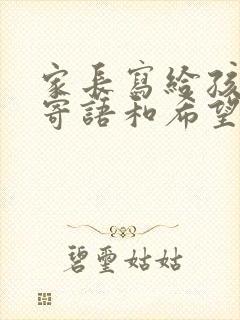 家長寫給孩
寄語和希望
碧璽姑姑